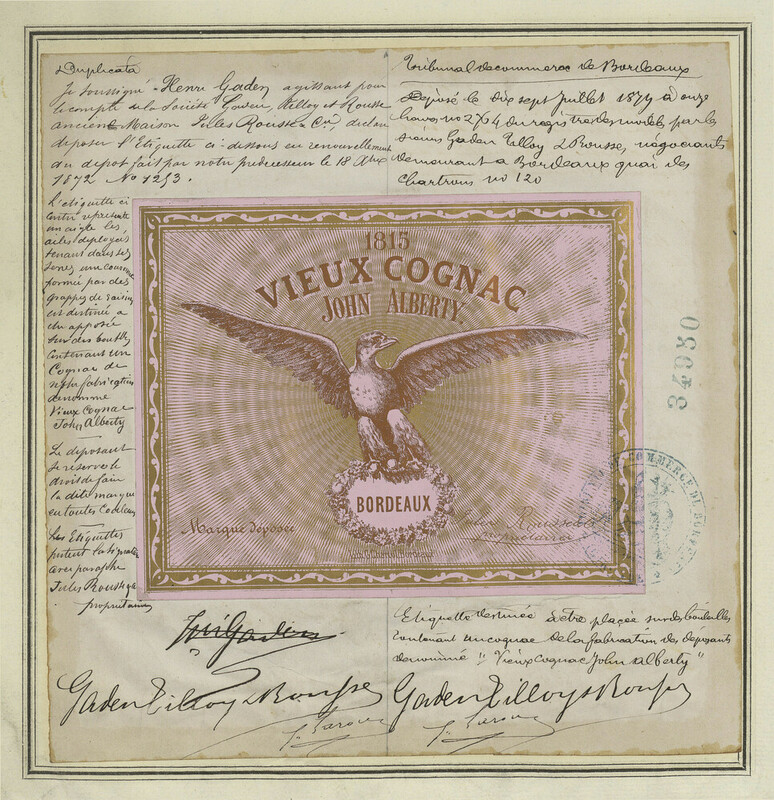 Duplicata
Je soussigné Henri Gaden agissant pour
le compte de la Société Gaden, Tilloy et Rousse
ancienne Maison Jules Rousse & Cie, déclare
déposer l'Etiquette ci dessous en renouvellement
du dépot fait par notre prédécesseur le 18
1872 No 1253.
Tribunal de commerce de Bordeaux
Déposé le dix sept Juillet 1879 à onze
heures no 2764 du registre des modèles par les
sieurs Gaden Tilloy & Rousse, négociants
demeurant à Bordeaux quai des
chartrons no 120
L'etiquette ci
contre représente
un aigle les
ailes deployées
tenant dans ses
serres une couronne
formée par des
grappes de raisin
est destinée a
etre apposée
sur des bouteilles
contenant un
Cognac de
notre fabrication
denommé
Vieux Cognac
John Alberty
Le deposant
se réserve le
droit de faire
la dite marque
en toutes couleurs
Les Etiquettes
portent la signature
avec paraphe
Jules Rousse & Cie
propriétaires
1815
VIEUX COGNAC
JOHN ALBERTY.
BORDEAUX
Marque déposée
Jules Rousse & Cie
propriétaires
34930
COMMERCE DE BORDEAUX
Etiquette destinée à être placée sur des bouteilles
contenant un cognac de la fabrication des déposants
denommé "Vieux Cognac John Alberty"
Henri Gaden
Gaden Tilloy & Rousse
Gaden Tilloy & Rousse